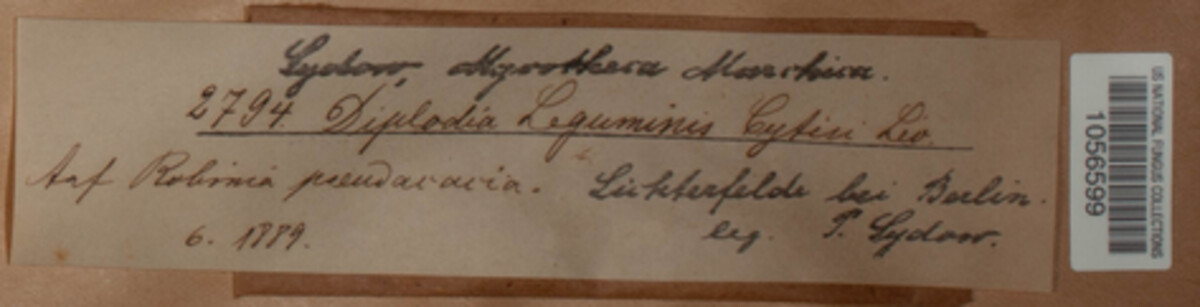 Sydow, Mycotheca Marchica.
2794. Diplodia Leguminis Cytisi Lév.
Auf Robinia pseudacacia. Lichterfelde bei Berlin.
6. 1889. leg. P. Sydow.
US NATIONAL FUNGUS COLLECTIONS
1056599